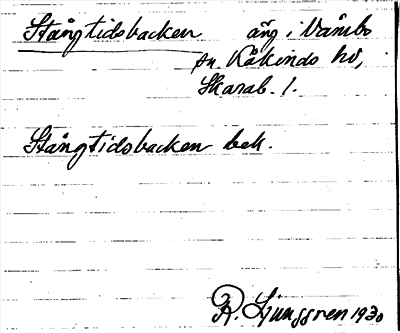 Stångtidsbacken äng i Våmbs
sn. Kåkinds hd,
Skarab. l.
Stångtidsbacken bek.
R. Ljunggren 1930